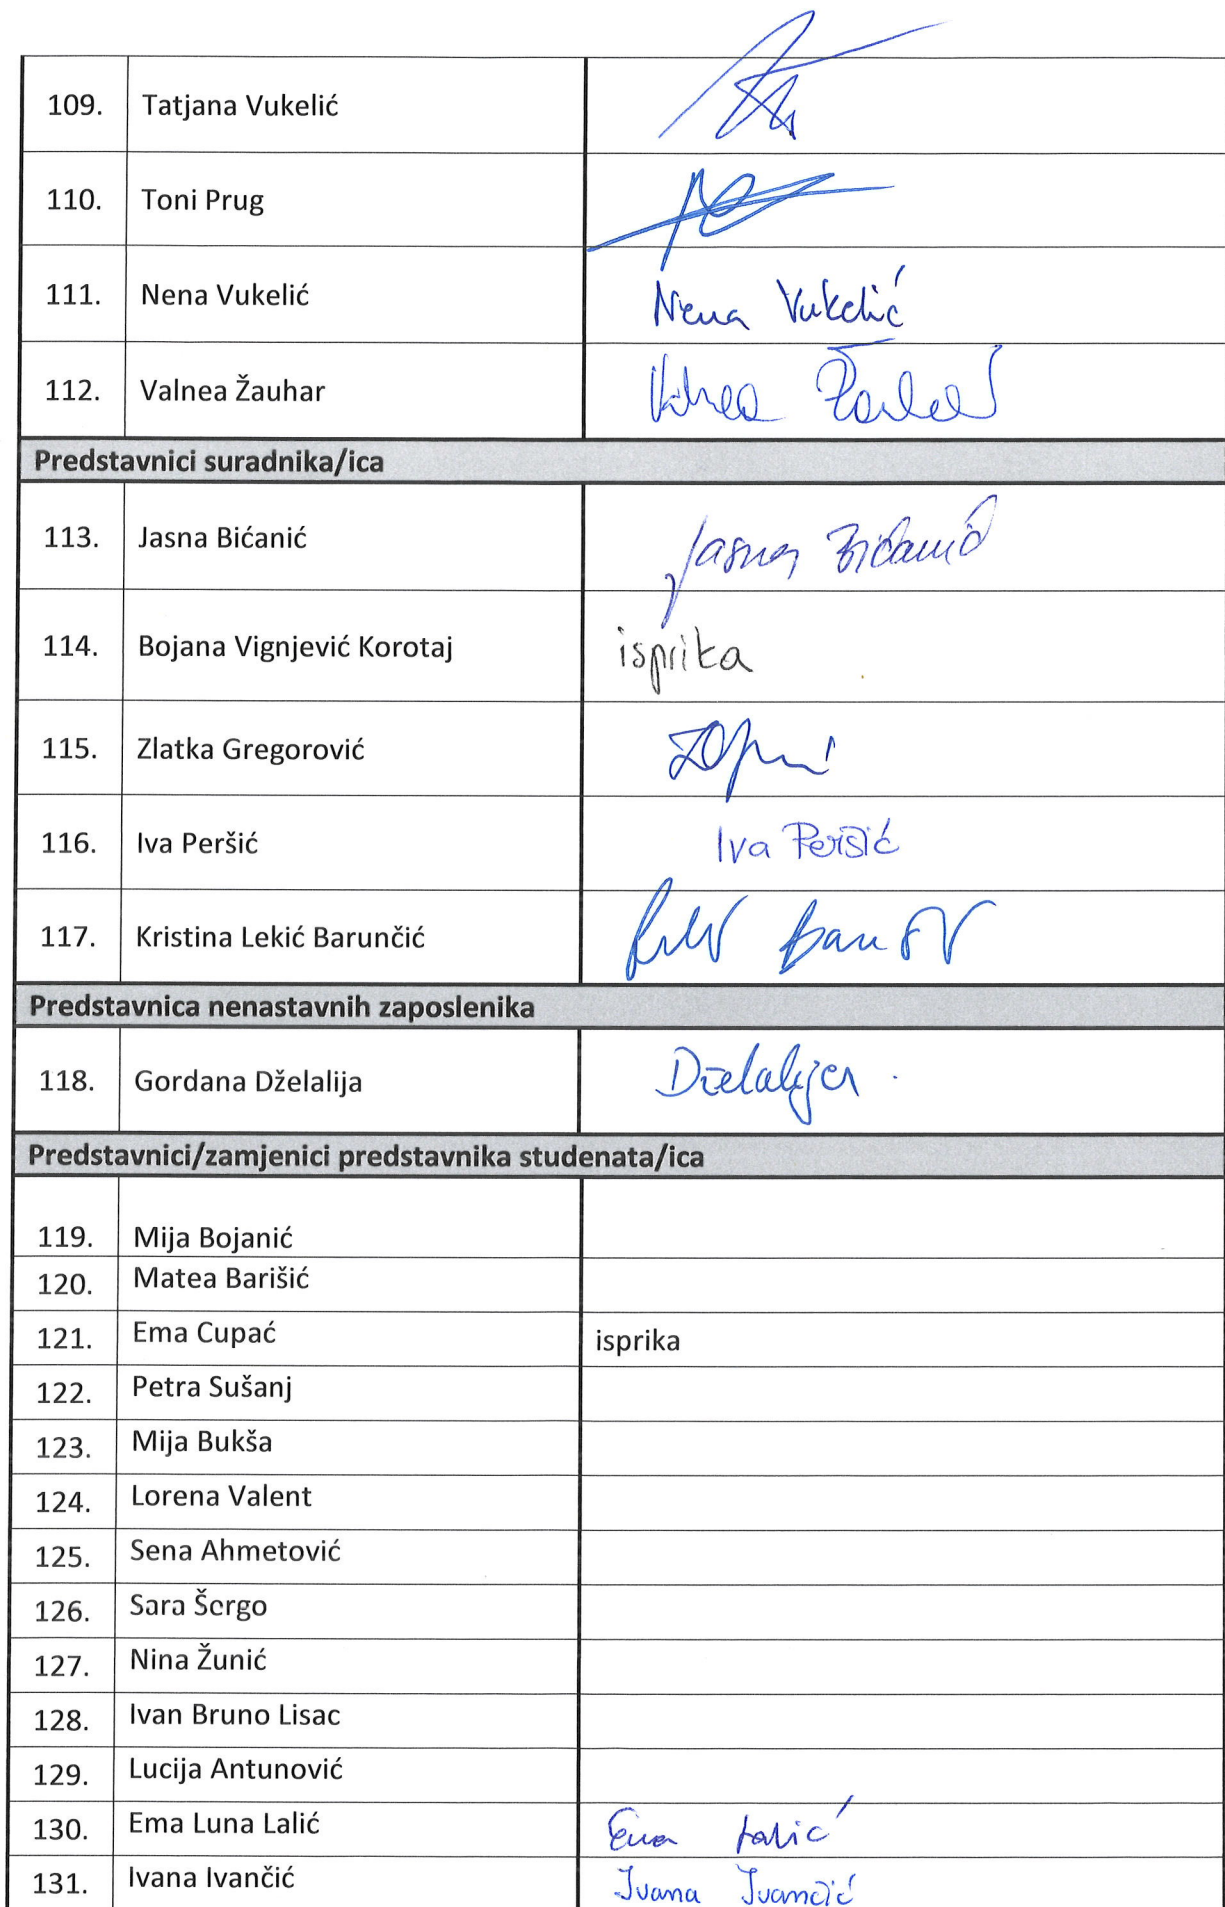 109. Tatjana Vukelić
110. Toni Prug
111. Nena Vukelić Nena Vukelić
112. Valnea Žauhar
Predstavnici suradnika/ica
113. Jasna Bićanić Jasna Bićanić
114. Bojana Vignjević Korotaj isprika
115. Zlatka Gregorović
116. Iva Peršić Iva Peršić
117. Kristina Lekić Barunčić
Predstavnica nenastavnih zaposlenika
118. Gordana Dželalija Dželalija
Predstavnici/zamjenici predstavnika studenata/ica
119. Mija Bojanić
120. Matea Barišić
121. Ema Cupać isprika
122. Petra Sušanj
123. Mija Bukša
124. Lorena Valent
125. Sena Ahmetović
126. Sara Šergo
127. Nina Žunić
128. Ivan Bruno Lisac
129. Lucija Antunović
130. Ema Luna Lalić Ema Lalić
131. Ivana Ivančić Ivana Ivančić